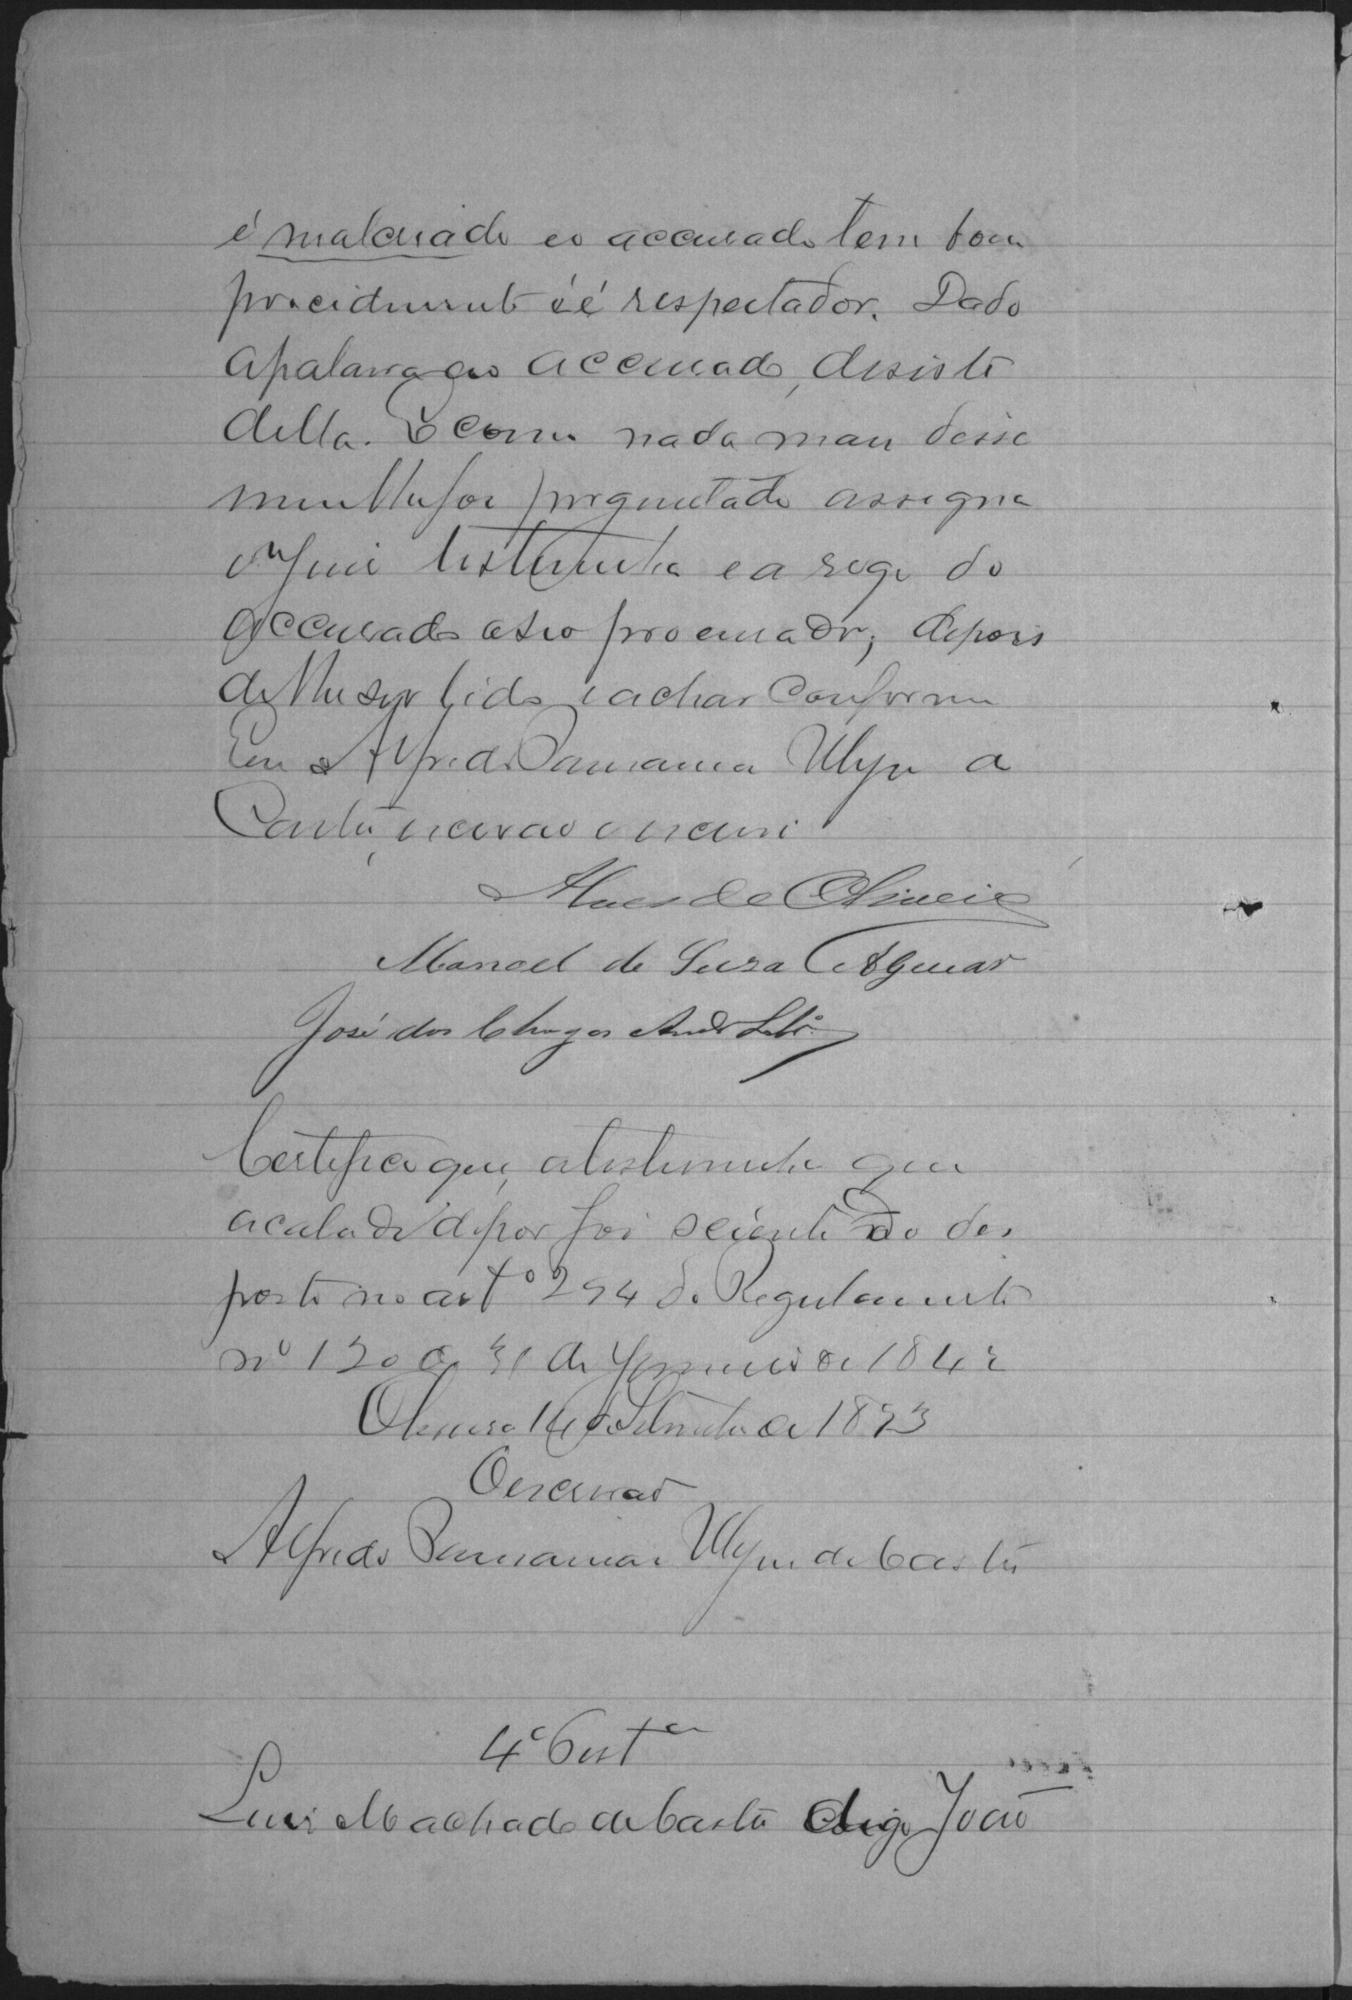 é malcriado e o accusado tem bom
procidimento e é respeitador. Dado
a palavra ao accusado, desiste
della. E como nada mais disse
nem lhe foi preguntado assigna
o Juiz testemunha e a rogo do
accusado o seo procurador, depois
de lhe ser lido e achar conforme
Eu Alfredo Parnama Ulyn a
Castro, escrivão escrevi
Alves de Oliveira
Manoel de Suza Aguiar
José das Chagas
Certifico que, a testemunha que
acaba de depor foi sciente do dis
posto no artº 294 do Regulamento
nº 120 de 31 de Janeiro de 1842
14 de Setembro de 1893
O escrivão
Alfredo de Castro
4ª Testª
Luis Machado de Castro digo João